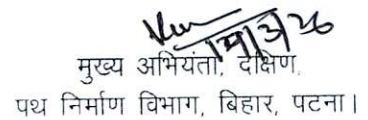 19/3/26
मुख्य अभियंता, दक्षिण,
पथ निर्माण विभाग, बिहार, पटना।